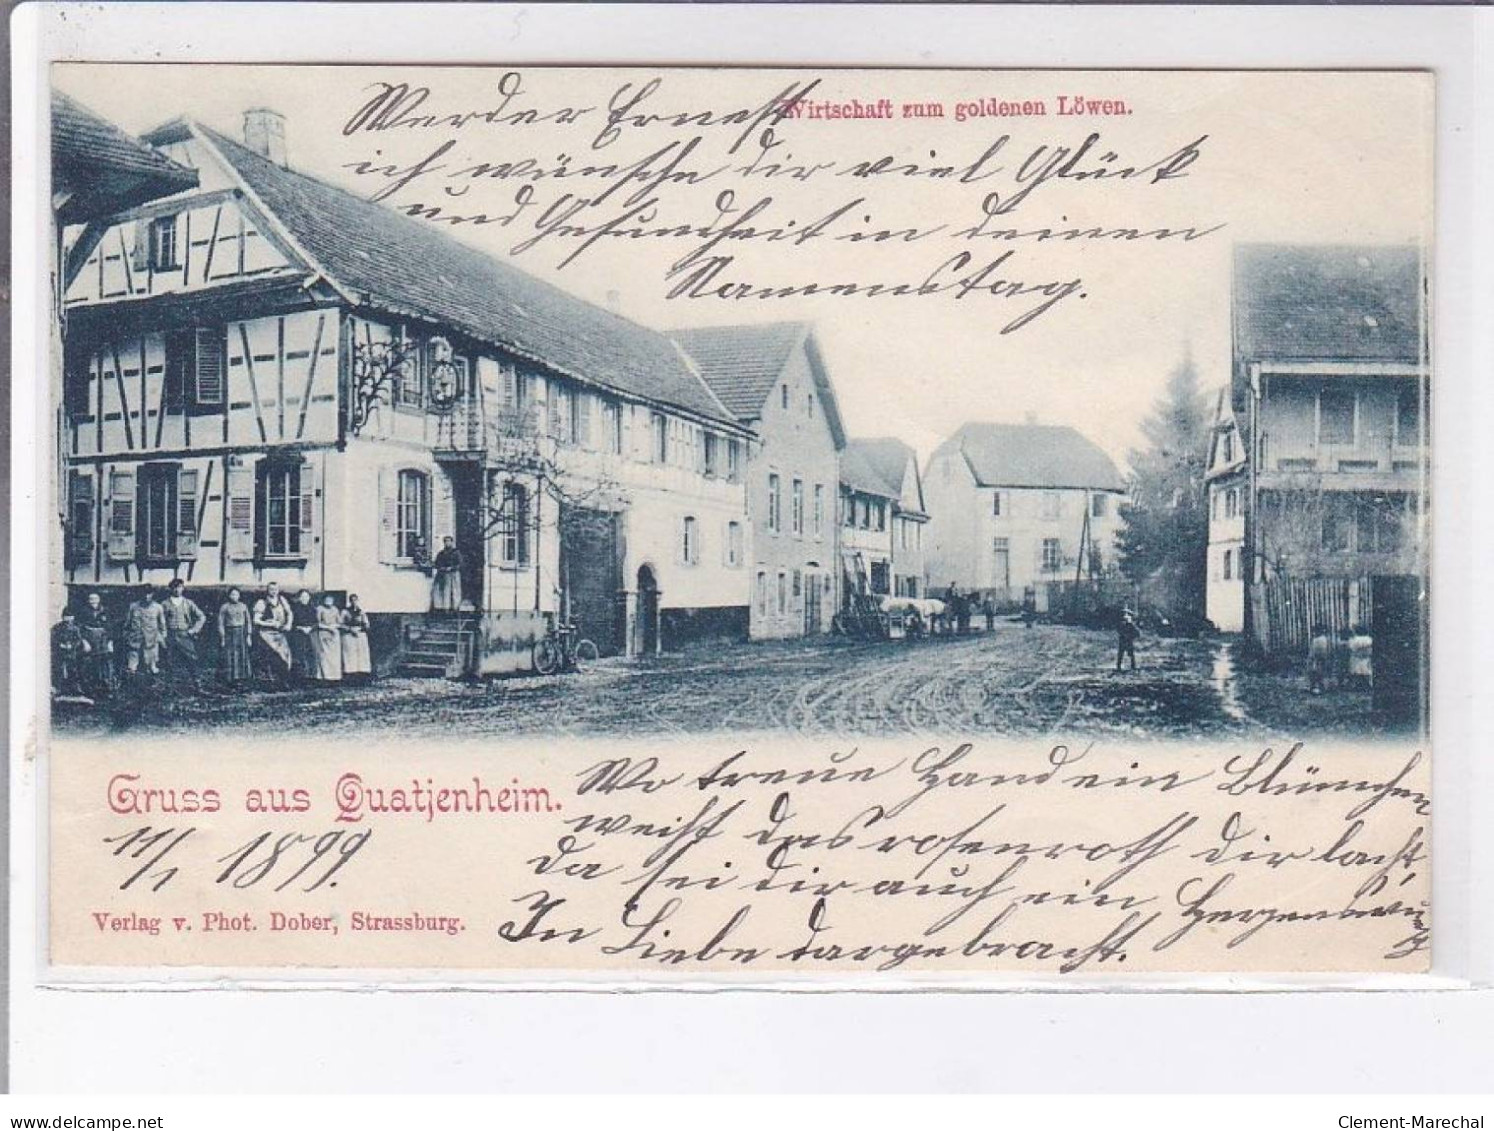 Werder Ernest
Wirtschaft zum goldenen Löwen.
ich wünsche dir viel Glück
und Gesundheit in deinen
Namenstag.
Gruss aus Quatjenheim.
11/1 1899.
Verlag v. Phot. Dober, Strassburg.
Wo treue Hand ein Blümchen
weiht das rosenroth dir lacht,
da sei dir auch ein Herzenswunsch
In Liebe dargebracht.
www.delcampe.net
Clement-Marechal